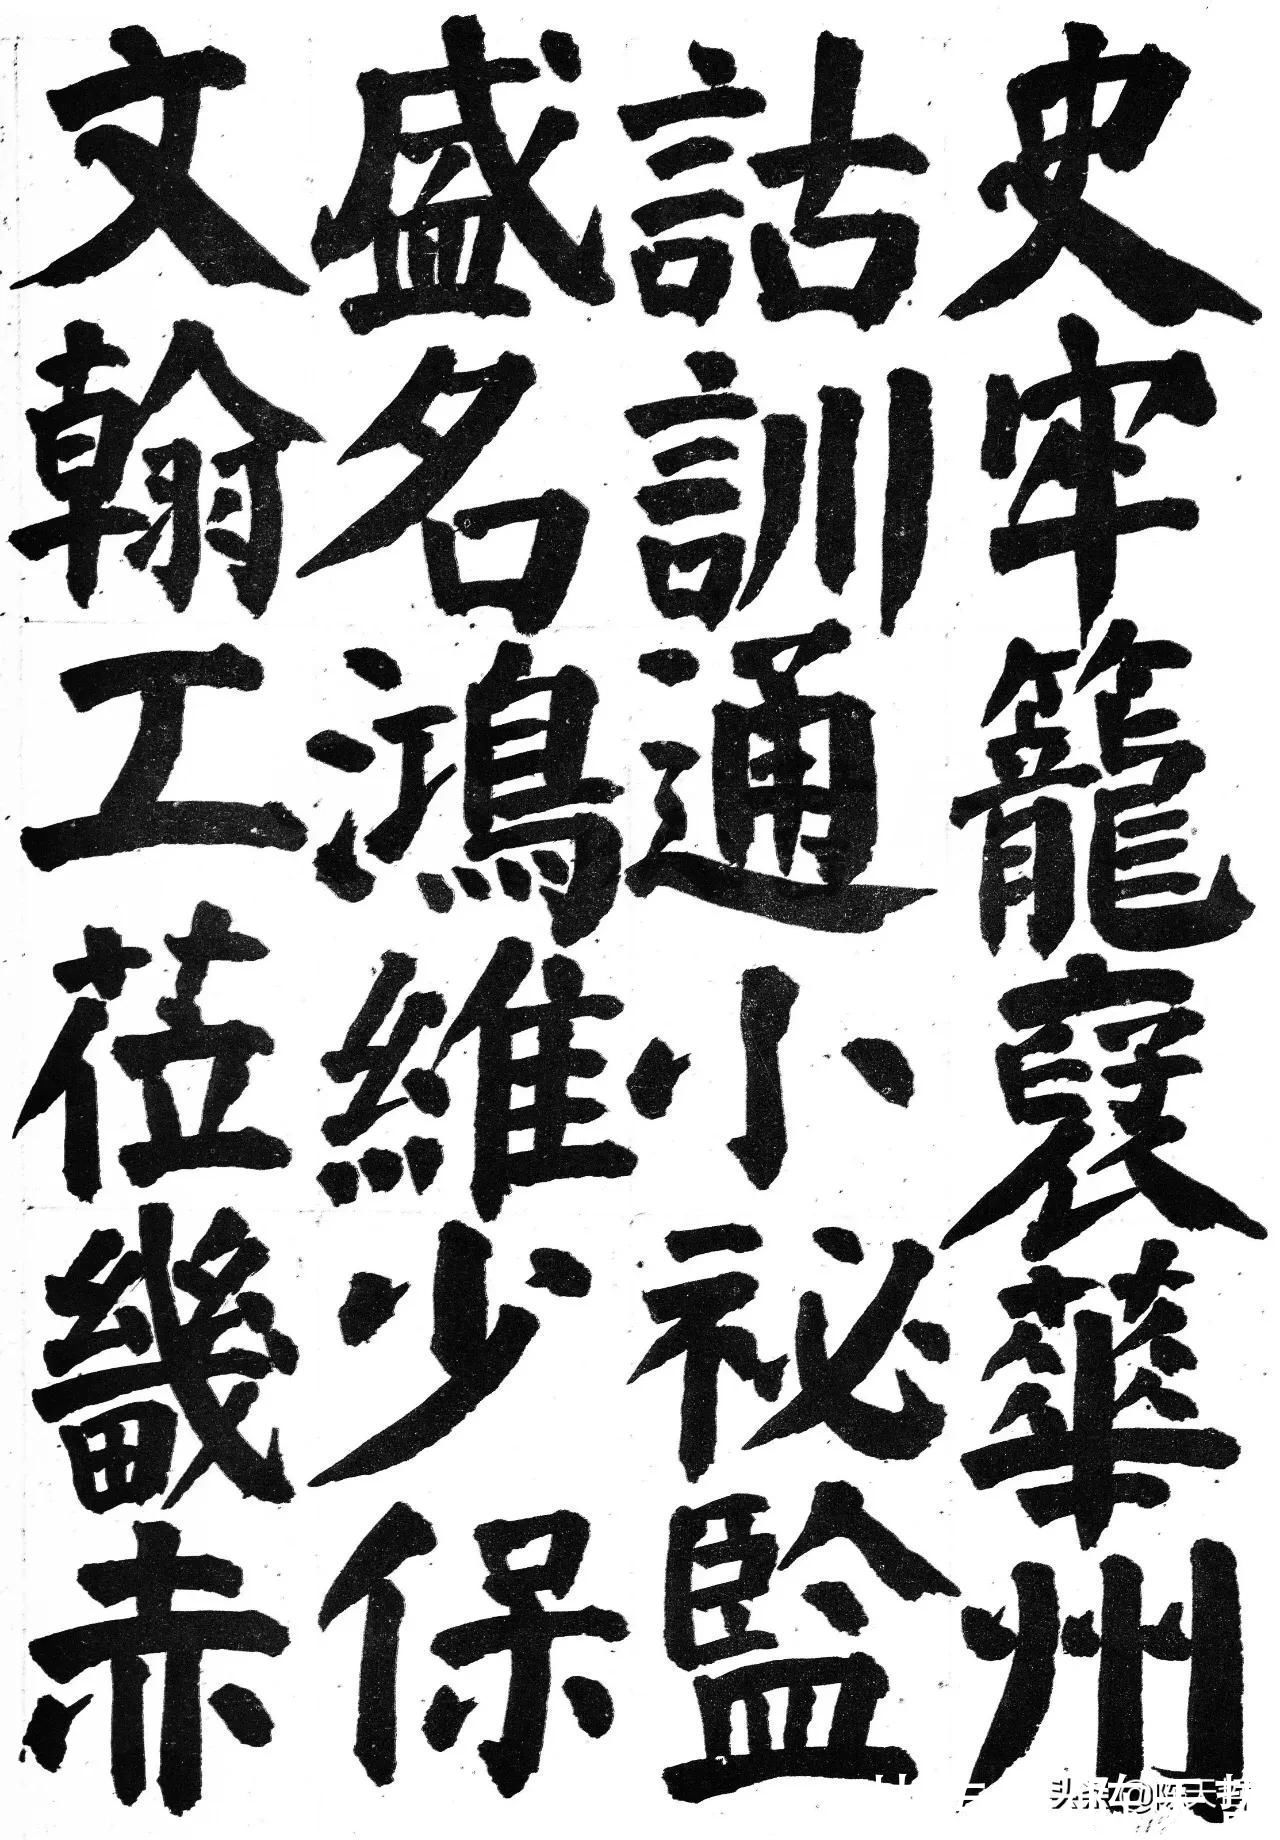 史牢籠裦華州
詁訓通小祕監
盛名鴻維少保
文翰工莅畿赤
头条@陈天